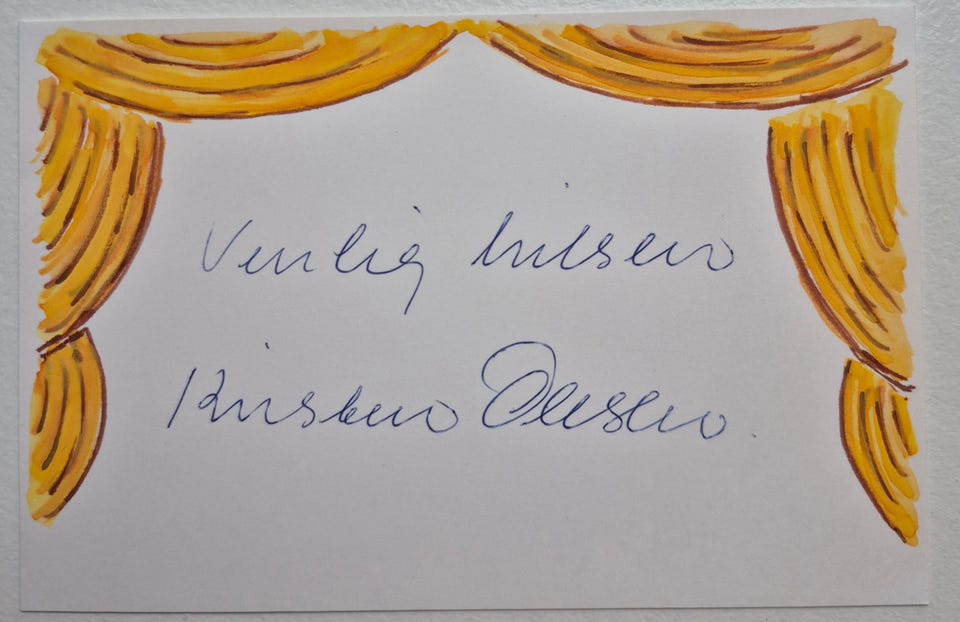 Venlig hilsen
Kirsten Olesen.